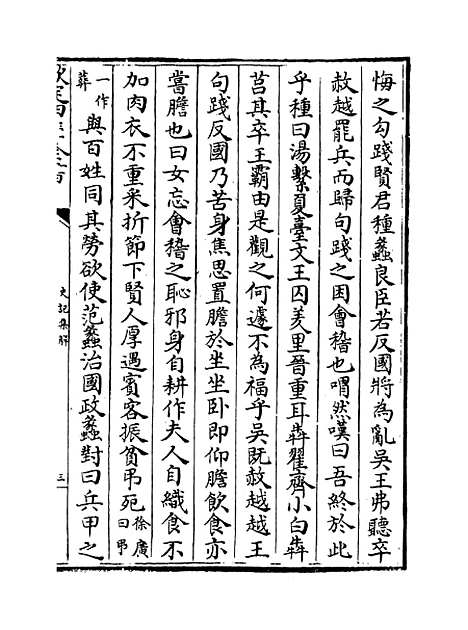 悔之勾踐賢君種蠡良臣若反國將為亂吳王弗聽卒
赦越罷兵而歸句踐之困會稽也喟然嘆曰吾終於此
乎種曰湯繫夏臺文王囚羑里晉重耳犇翟齊小白犇
莒其卒王霸由是觀之何遽不為福乎吳既赦越越王
句踐反國乃苦身焦思置膽於坐坐卧即仰膽飲食亦
嘗膽也曰女忘會稽之恥邪身自耕作夫人自織食不
加肉衣不重采折節下賢人厚遇賓客振貧弔死徐廣曰弔
一作葬與百姓同其勞欲使范蠡治國政蠡對曰兵甲之
欽定四庫全書
史記集解
三